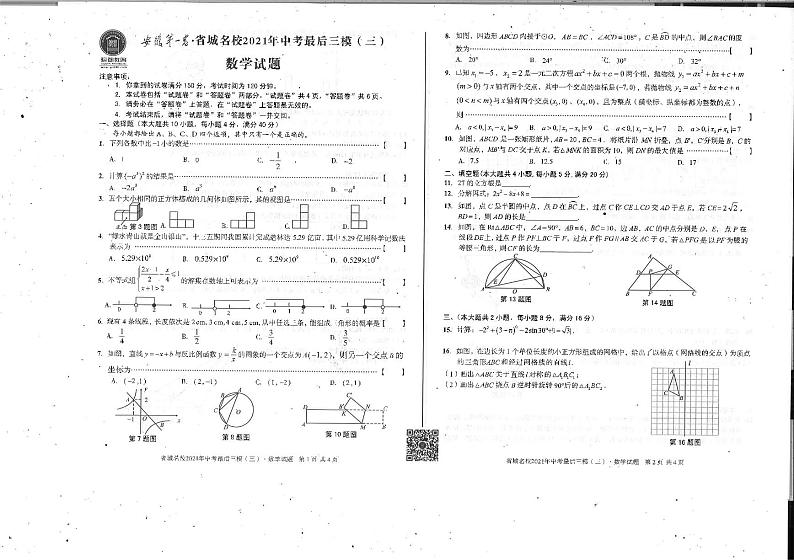 安徽第一卷·省城名校2021年中考最后三模（三）
数学试题
注意事项：
1. 你拿到的试卷满分150分，考试时间为120分钟。
2. 本试卷包括“试题卷”和“答题卷”两部分。“试题卷”共4页，“答题卷”共6页。
3. 请务必在“答题卷”上答题，在“试题卷”上答题是无效的。
4. 考试结束后，请将“试题卷”和“答题卷”一并交回。
一、选择题（本大题共10小题，每小题4分，满分40分）
每小题都给出A、B、C、D四个选项，其中只有一个是正确的。
1. 下列各数中比-1小的数是【 】
A. 1 B. 0 C. -1/2 D. -2
2. 计算(-a²)³的结果是【 】
A. -2a³ B. a⁵ C. a⁶ D. -a⁶
3. 五个大小相同的正方体搭成的几何体如图所示，其的视图是【 】
第3题图 A. B. C. D.
4. “绿水青山就是金山银山”，十三五期间我国累计完成造林达5.29亿亩，其中5.29亿用科学记数法
表示为【 】
A. 5.29×10⁸ B. 0.529×10⁹ C. 52.9×10⁸ D. 0.529×10¹⁰
5. 不等式组 的解集在数轴上可表示为【 】
A. B. C. D.
6. 现有4条线段，长度依次是2cm, 3cm, 4cm, 5cm, 从中任选三条，能组成三角形的概率是【 】
A. 1/4 B. 1/2 C. 3/4 D. 3/5
7. 如图，直线y=-x+b与反比例函数y=k/x的图象的一个交点为A(-1,2)，则另一个交点B的
坐标为【 】
A. (-2,1) B. (2,-1) C. (1,-2) D. (2,1)
第7题图 第8题图 第10题图
省城名校2021年中考最后三模（三）·数学试题 第1页 共4页
8. 如图，四边形ABCD内接于⊙O，AB=BC，∠ACD=108°，C是BD的中点，则∠BAC的度
数为【 】
A. 20° B. 24° C. 30° D. 32°
9. 已知x₁=-5，x₂=2是一元二次方程ax²+bx+c=0两个根，抛物线y₁=ax²+bx+c+m
(m>0)与x轴有两个交点，其中一个的坐标是(-7,0)，其抛物线y₂=ax²+bx+c+n
(0<n<m)与x轴有两个交点(x₃,0)、(x₄,0)，且为整点（横坐标、纵坐标都为整数的点），
则【 】
A. a<0,|x₃-x₄|=9 B. a>0,|x₃-x₄|=9 C. a<0,|x₃-x₄|=7 D. a>0,|x₃-x₄|=7
10. 如图，ABCD是一张矩形纸片，AB=20，BC=4，将纸片沿MN折叠，点B′、C′分别是B、C的
对应点，MB′与DC交于点K，若△MNK的面积为10，则DN的最大值是【 】
A. 7.5 B. 12.5 C. 15 D. 17
二、填空题（本大题共4小题，每小题5分，满分20分）
11. 27的立方根是
12. 分解因式：2x²-8x+8=
13. 如图，点C是半圆的中点，点D在BC上，过点C作CE⊥CD交AD于点E，若CE=2√2，
BD=1，则AD的长是
14. 如图，在Rt△ABC中，∠A=90°，AB=6，BC=10，边AB、AC的中点分别是D、E，点P在
线段DE上，过点P作PF⊥BC于F，过点P作PG∥AB交AC于G，若△PFG是以PF为腰的
等腰三角形，则CF长为
第13题图 第14题图
三、（本大题共2小题，每小题8分，满分16分）
15. 计算：-2²+(3-π)⁰-2sin30°+|-√3|.
16. 如图，在边长为1个单位长度的小正方形组成的网格中，给出了以格点（网格线的交点）为顶点
的三角形ABC和经过网格线的直线l.
(1) 画出△ABC关于直线l对称的△A₁B₁C₁；
(2) 画出△ABC绕点B逆时针旋转90°后的△A₂BC₂.
第16题图
省城名校2021年中考最后三模（三）·数学试题 第2页 共4页